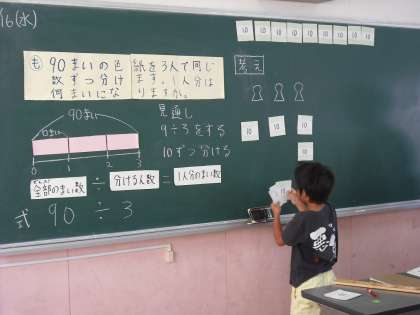 16(水)
も 90まいの色紙を3人で同じ
数ずつ分けます。1人分は
何まいになりますか。
考え
10 10 10 10 10 10 10 10 10
90まい
□まい
0 1 2 3
見通し
9÷3をする
10ずつ分ける
10 10 10
10
10
全部のまい数 ÷ 分ける人数 = 1人分のまい数
式 90 ÷ 3